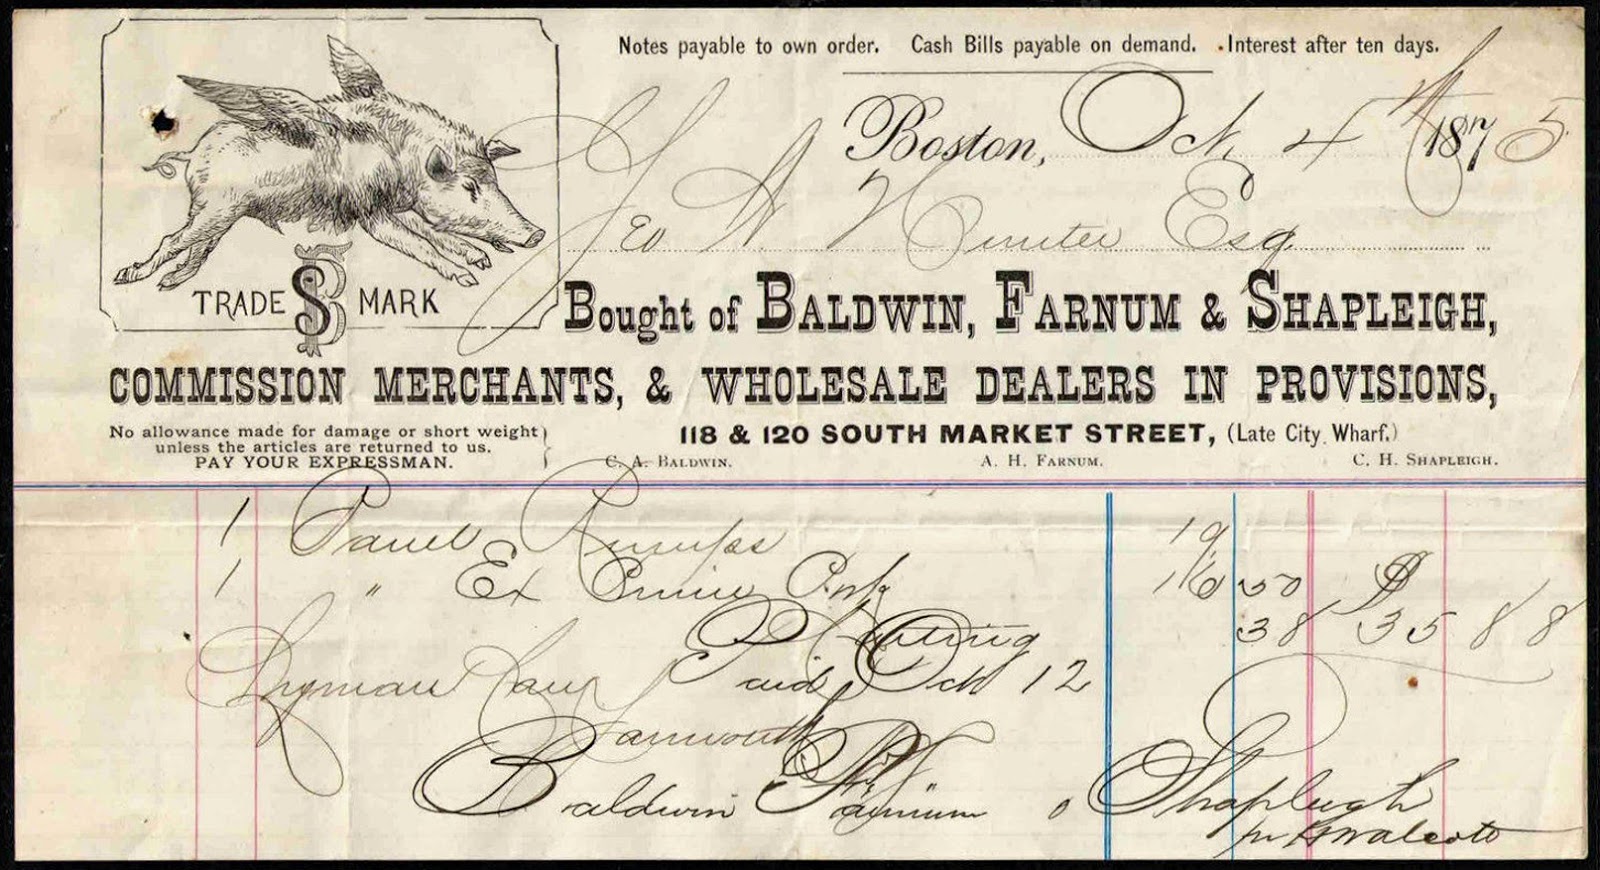 Notes payable to own order. Cash Bills payable on demand. Interest after ten days.
Boston, Oct. 4th 1875
Geo A Hunter Esq
TRADE SB MARK
Bought of BALDWIN, FARNUM & SHAPLEIGH,
COMMISSION MERCHANTS, & WHOLESALE DEALERS IN PROVISIONS,
No allowance made for damage or short weight
unless the articles are returned to us.
PAY YOUR EXPRESSMAN.
118 & 120 SOUTH MARKET STREET, (Late City Wharf.)
C. A. BALDWIN. A. H. FARNUM. C. H. SHAPLEIGH.
1 Rumps 19
1 " Ex Prime Pork 16 50 $
Carting 38 35 88
Paid Oct 12
Yarmouth
Baldwin Farnum & Shapleigh